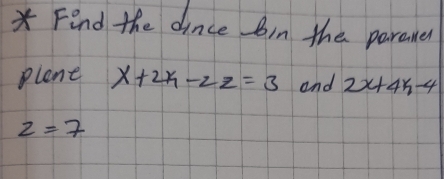 * Find the dince bin the parallel
plane x+2y-2z=3 and 2x+4y-4
z=7